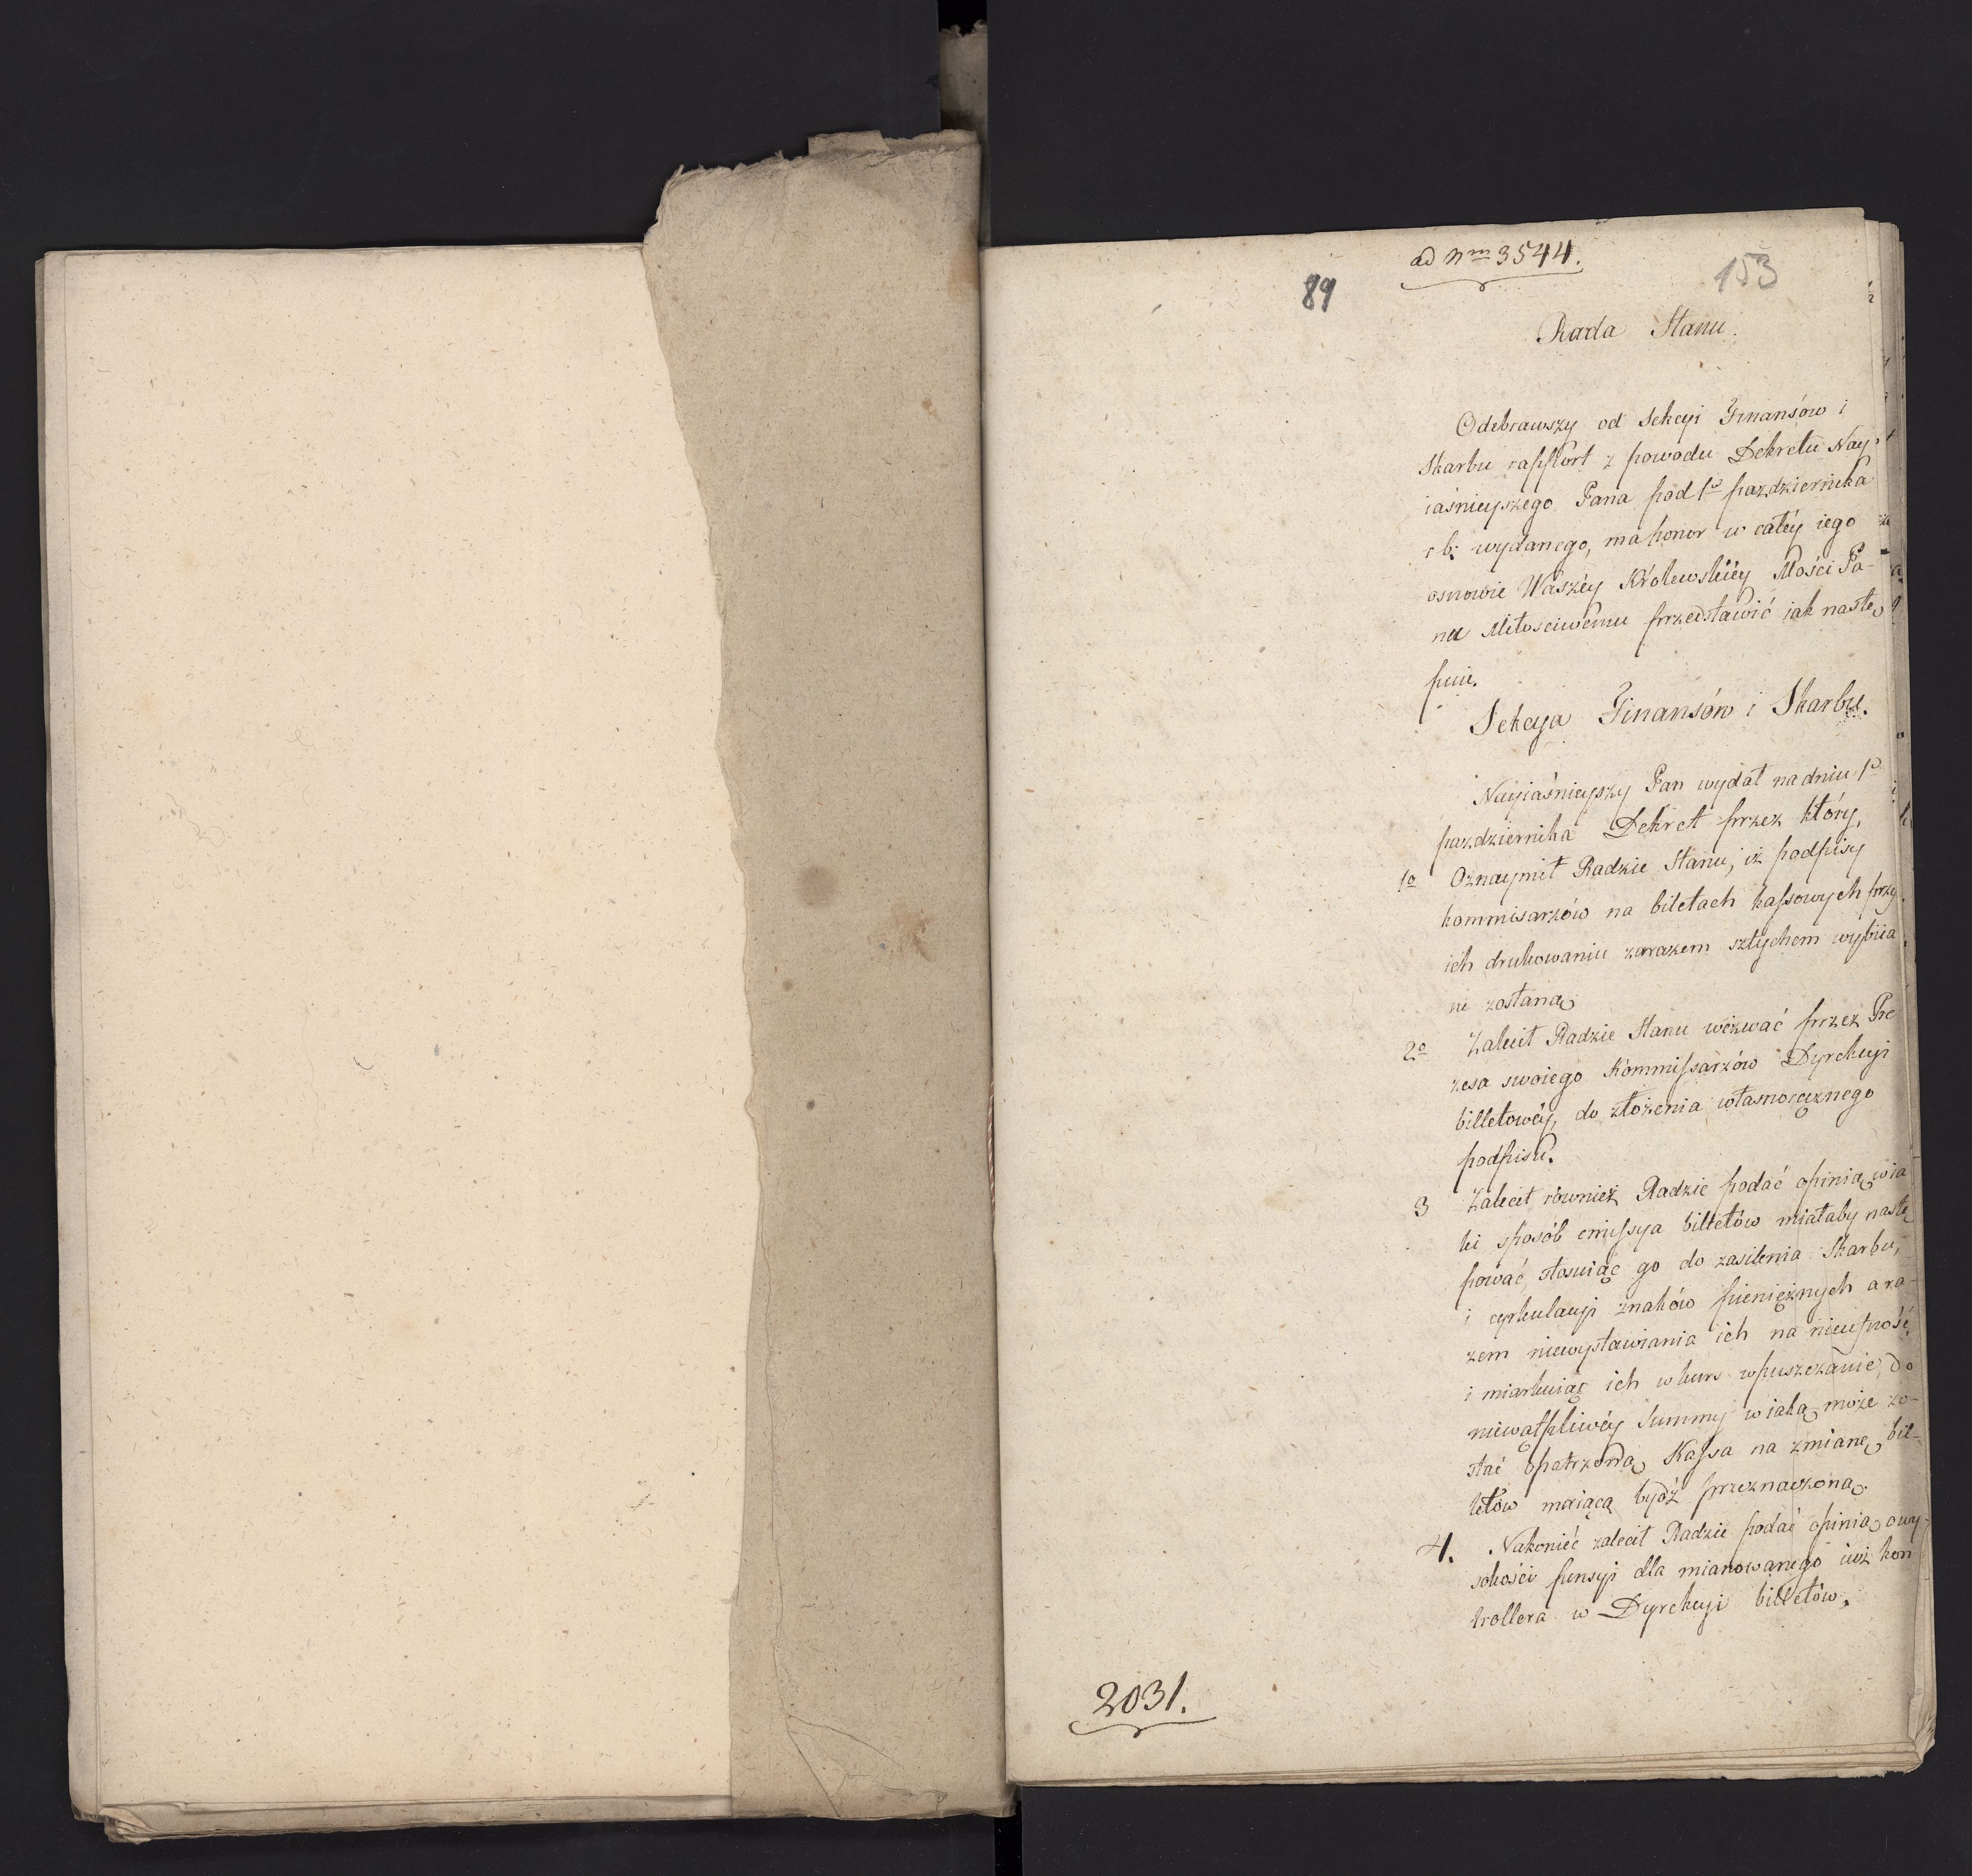 ad Nm 3544.
89
153
Rada Stanu.
Odebrawszy od Sekcyi Finansów i
Skarbu rapport z powodu Dekretu Nay
iaśnieyszego Pana pod 1o pazdziernika
r b: wydanego, ma honor w całéy iego
osnowie Waszéy Królewskiéy Mości Pa-
nu Miłosciwemu przedstawić jak nastę
puie.
Sekcya Finansów i Skarbu.
Nayiaśnieyszy Pan wydał na dniu 1o
pazdziernika Dekret przez który,
1o Oznaymił Radzie Stanu, iż podpisy
kommisarzów na biletach kassowych przy
ich drukowaniu zarazem sztychem wybiia
ne zostaną
2o Zalecił Radzie Stanu wezwać przez Pre
zesa swoiego Kommissarzów Dyrekcyi
billetowéy, do złożenia własnoręcznego
podpisu.
3 Zalecił również Radzie podać opinią w ia
ki sposób emissya billetów miałaby nastę
pować, stosuiąc go do zasilenia Skarbu,
i cyrkulacyi znaków pieniężnych a ra-
zem niewystawiania ich na nieufność
i miarkuiąc ich w kurs wpuszczanie, do
niewątpliwéy Summy w iaką może zo-
stać opatrzoną Kassa na zmianę bil-
letów maiącą bydź przeznaczoną.
4. Nakonieć zalecił Radzie podać opinią o wy-
sokości pensyi dla mianowanego iuż kon
trollera w Dyrekcyi billetów.
2031.